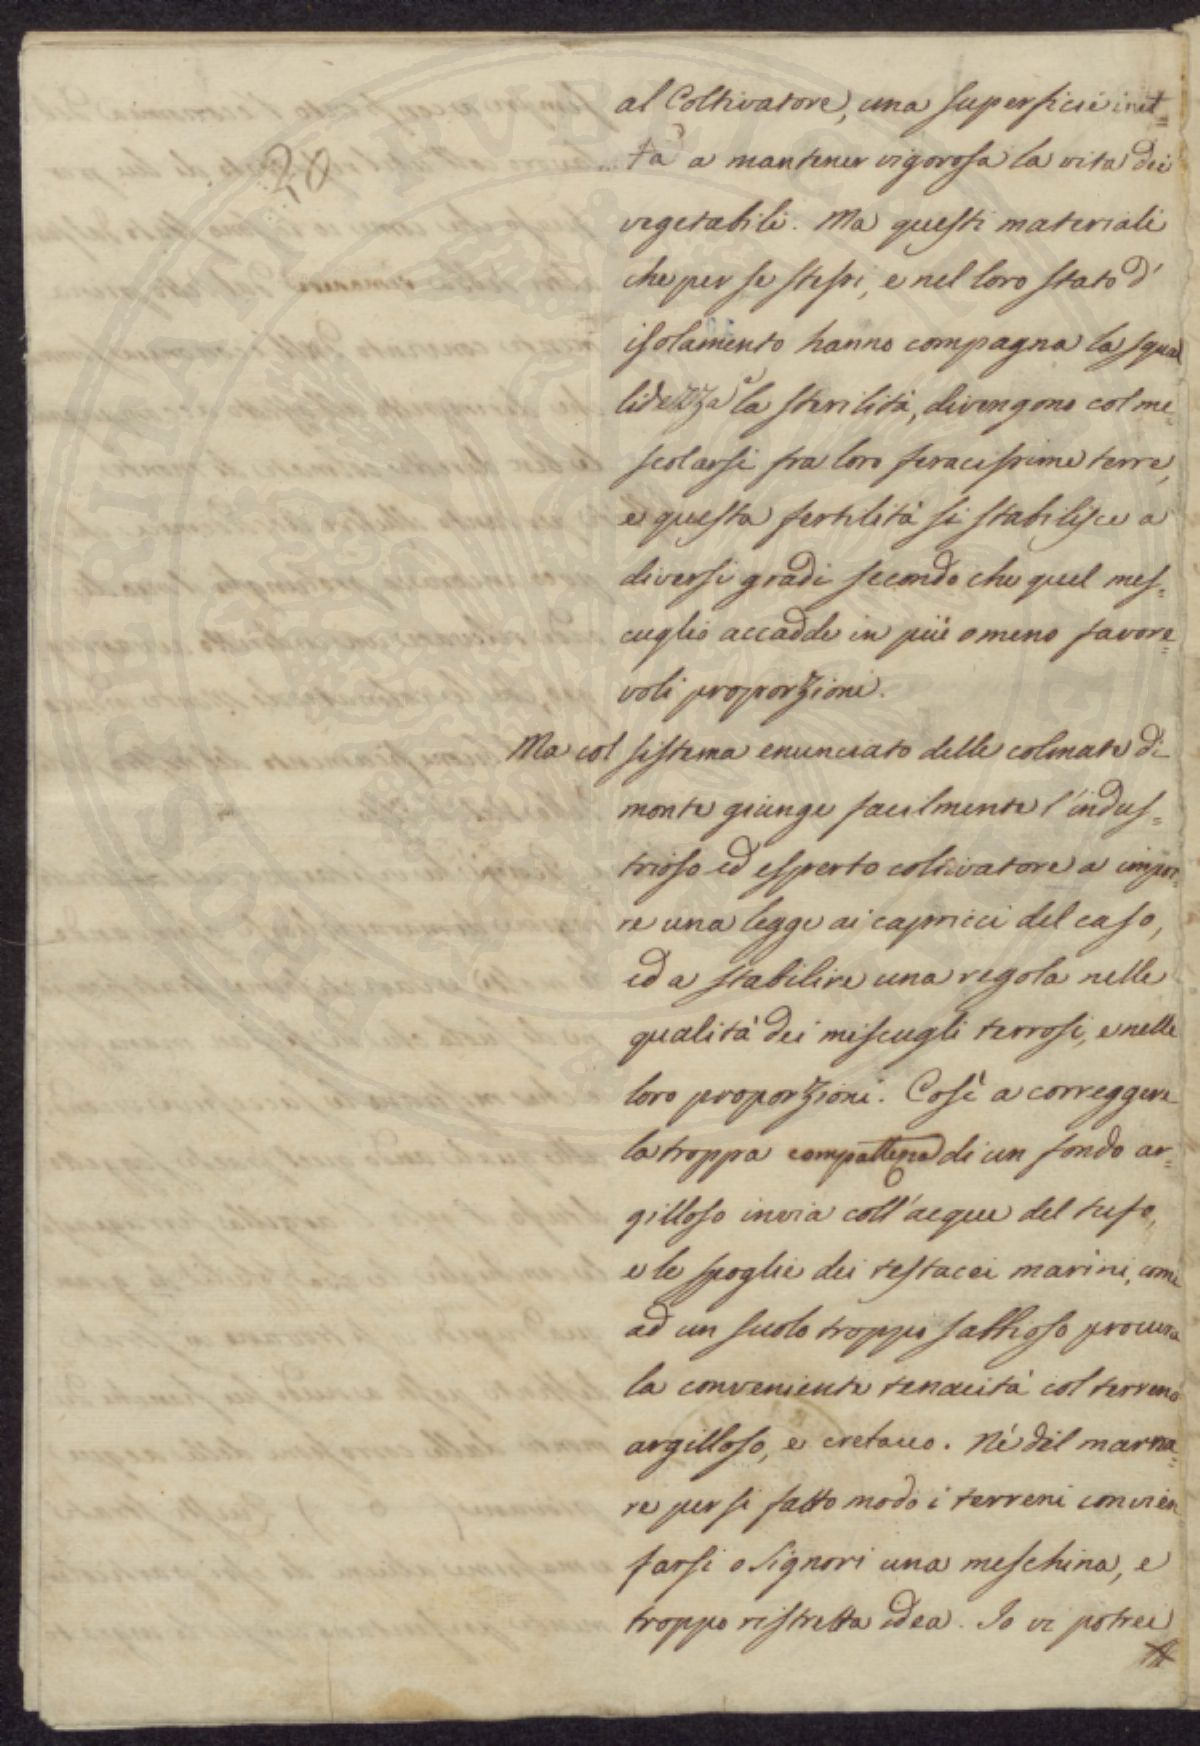 20
al Coltivatore, una superficie inet=
ta a mantener vigorosa la vita dei
vegetabili. Ma questi materiali
che per se stessi, e nel loro stato d'
isolamento hanno compagna la squal
lidezza e la sterilità, divengono col me=
scolarsi fra loro feracissime terre,
e questa fertilità si stabilisce a
diversi gradi secondo che quel mes=
cuglio accadde in più o meno favore=
voli proporzioni.
Ma col sistema enunciato delle colmate di
monte giunge facilmente l'indus=
trioso ed esperto coltivatore a impor=
re una legge ai capricci del caso,
ed a stabilire una regola nelle
qualità dei miscugli terrosi, e nelle
loro proporzioni. Così a correggere
la troppa compattezza di un fondo ar=
gilloso invia coll'acque del tufo,
e le spoglie dei testacei marini, come
ad un suolo troppo sabbioso procura
la conveniente tenacità col terreno
argilloso, e cretaceo. Nè del marna=
re per si fatto modo i terreni convien
farsi o Signori una meschina, e
troppo ristretta idea. Io vi potrei